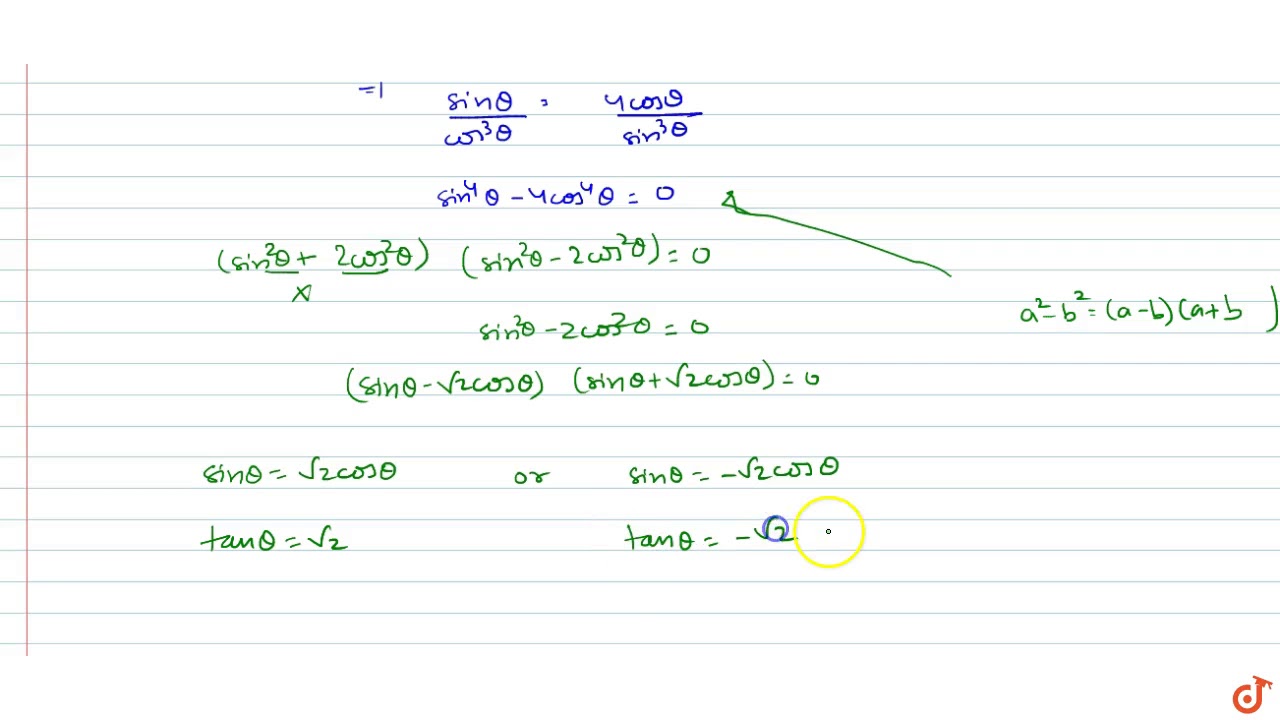 =1 sinθ/cos³θ = 4cosθ/sin³θ
sin⁴θ - 4cos⁴θ = 0
(sin²θ + 2cos²θ) (sin²θ - 2cos²θ) = 0
×
a² - b² = (a-b)(a+b)
sin²θ - 2cos²θ = 0
(sinθ - √2cosθ) (sinθ + √2cosθ) = 0
sinθ = √2cosθ or sinθ = -√2cosθ
tanθ = √2 tanθ = -√2